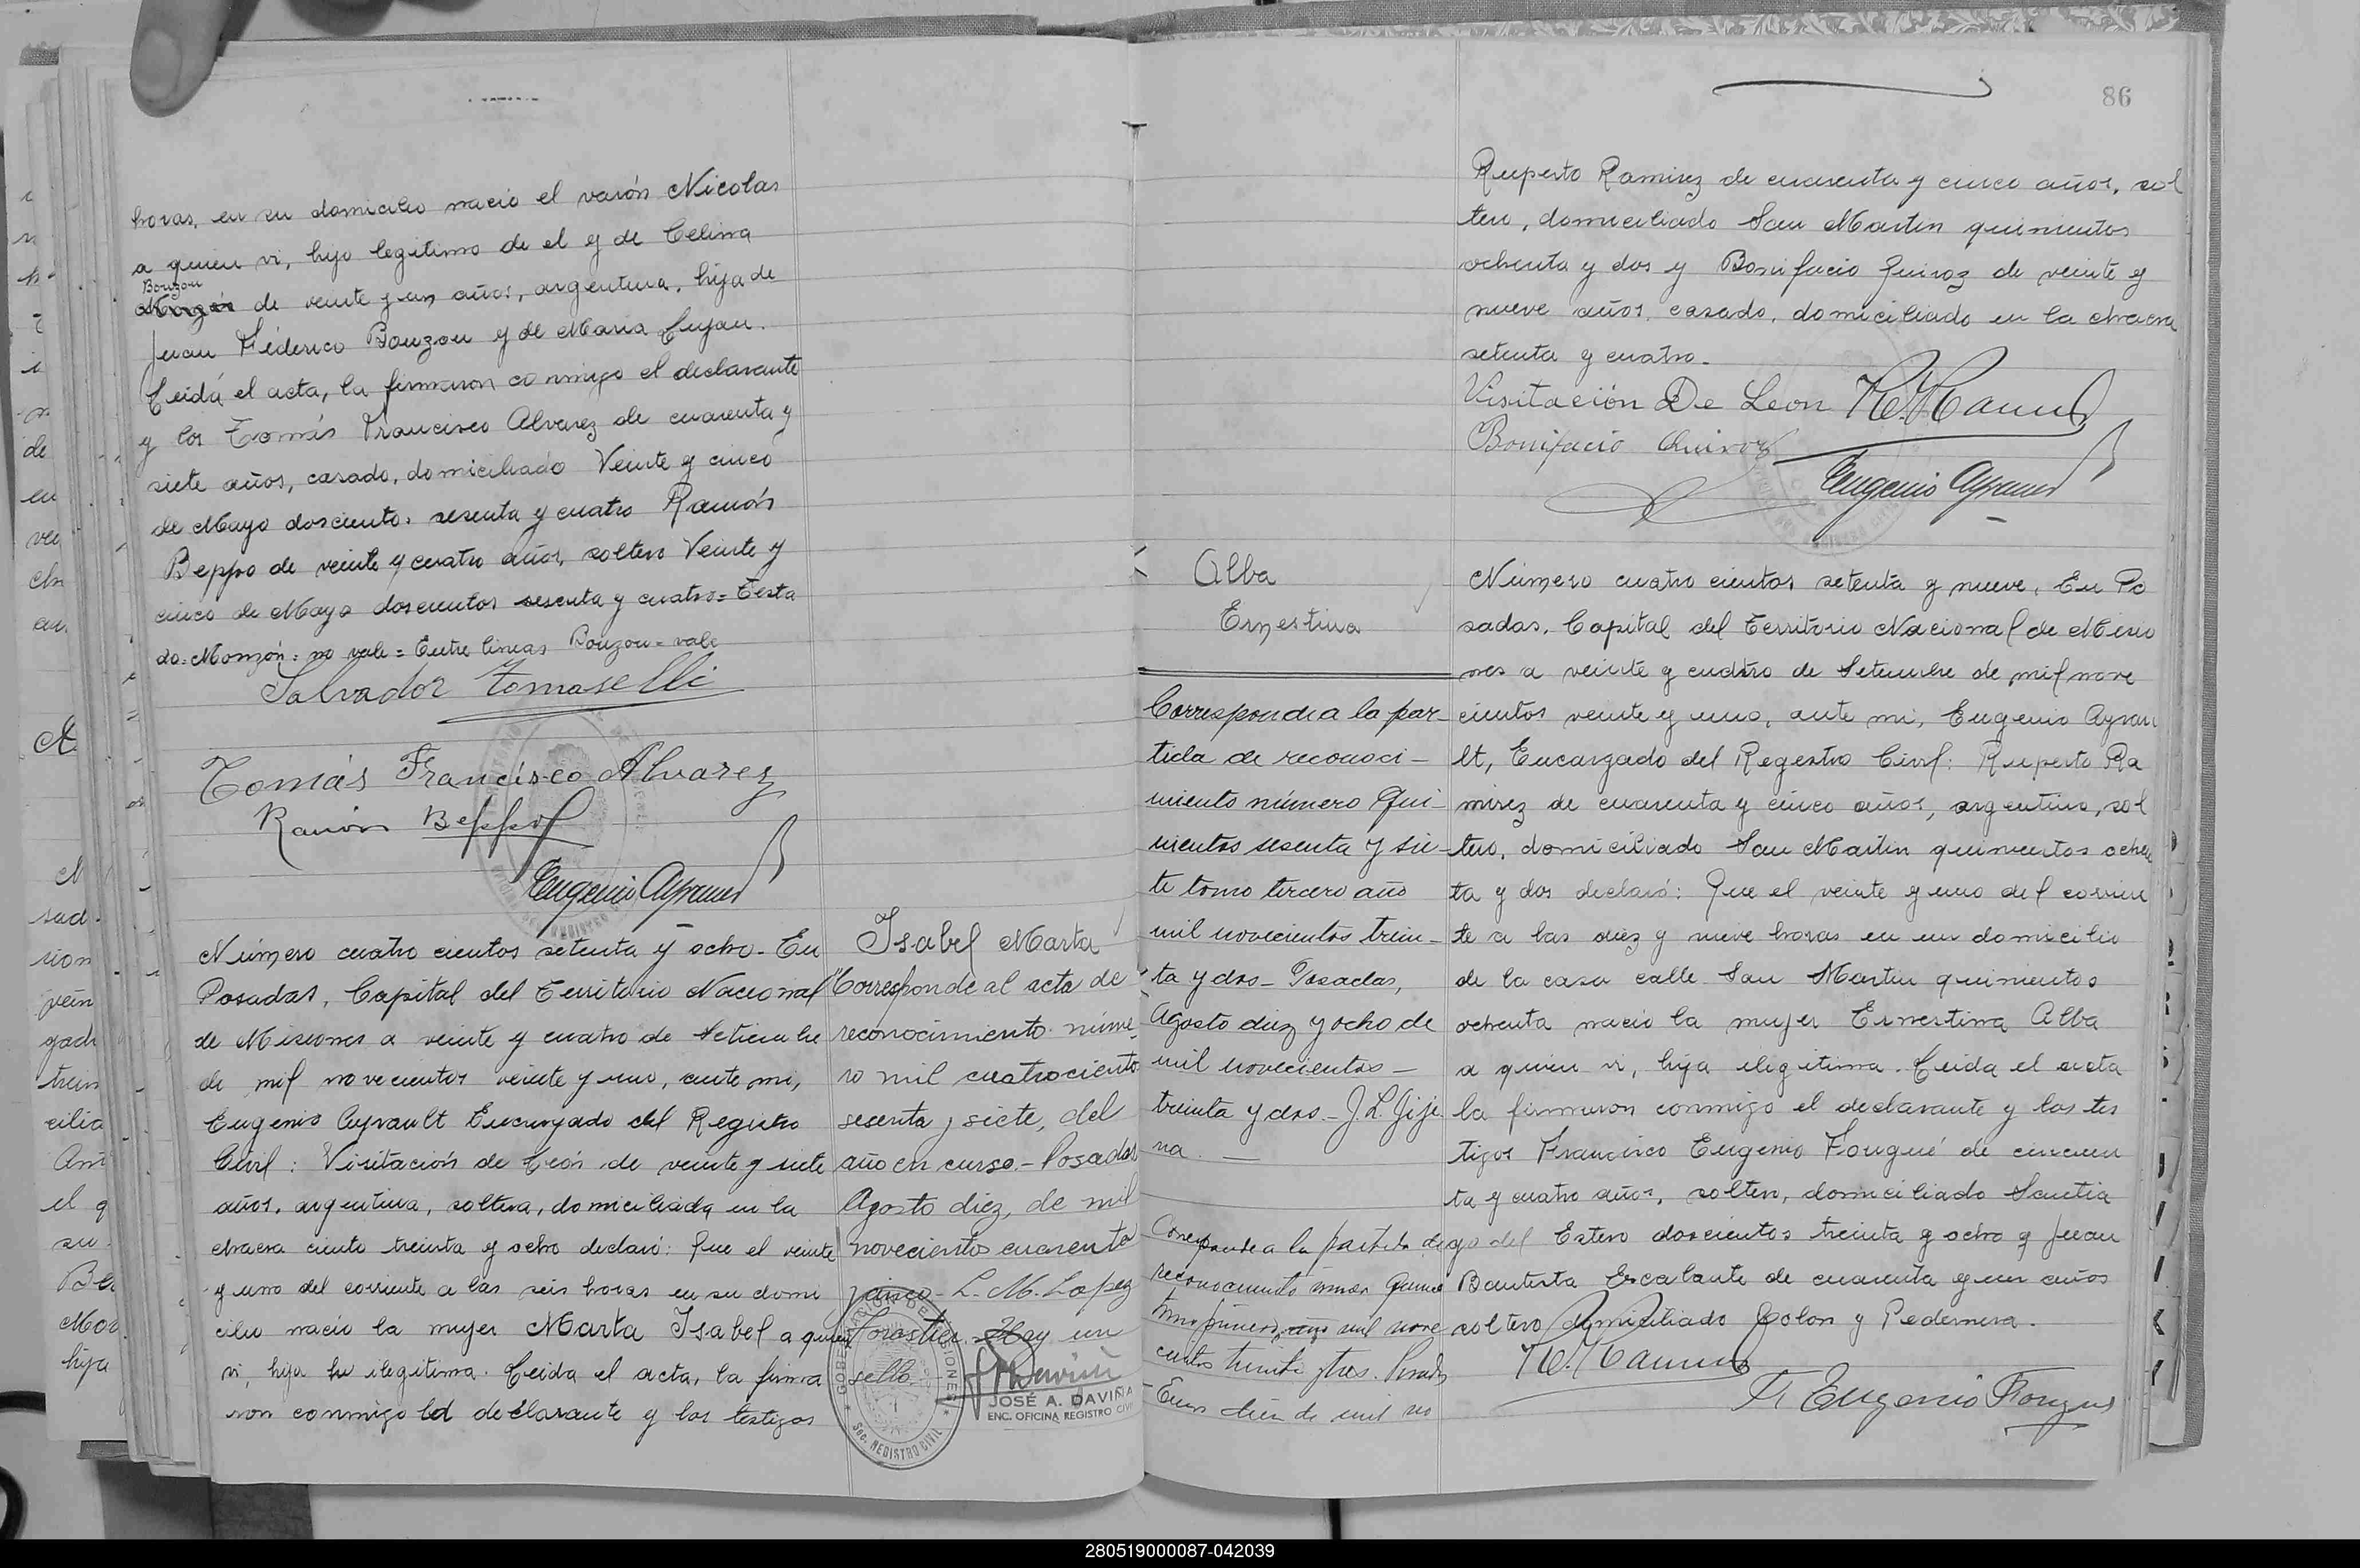 horas, en su domicilio nació el varón Nicolas
a quien vi, hijo legitimo de el y de Celina
Bouzon
Monzón de veinte y un años, argentina, hija de
Juan Féderico Bouzon y de Maria Lujan.
Leida el acta, la firmaron conmigo el declarante
y los Tomás Francisco Alvarez de cuarenta y
siete años, casado, domiciliado Veinte y cinco
de Mayo doscientos sesenta y cuatro Ramón
Beppo de veinte y cuatro años, soltero Veinte y
cinco de Mayo doscientos sesenta y cuatro= Testa
do=Monzón: no vale= Entre lineas Bouzon=vale
Salvador Tomaselli
Tomás Francisco Alvarez
Ramón Beppo
Eugenio Ayrault
Número cuatro cientos setenta y ocho- En
Posadas, Capital del Territorio Nacional
de Misiones a veinte y cuatro de Setiembre
de mil novecientos veinte y uno, ante mi,
Eugenio Ayrault Encargado del Registro
Civil: Visitación de León de veinte y siete
años, argentina, soltera, domiciliada en la
chacra ciento treinta y ocho declaró: Que el veinte
y uno del corriente a las seis horas en su domi
cilio nació la mujer Marta Isabel a quien
vi, hija ilegitima. Leida el acta, la firma
ron conmigo la declarante y los testigos
Isabel Marta
Corresponde al acta de
reconocimiento núme
ro mil cuatrociento
sesenta y siete, del
año en curso.- Posadas
Agosto diez, de mil
novecientos cuarenta
y cinco- L. M. Lopez
Forastier. Hay un
sello.
GOBERNACION DE MISIONES
Sec. REGISTRO CIVIL
JOSÉ A. DAVIÑA
ENC. OFICINA REGISTRO CIVIL
86
Ruperto Ramirez de cuarenta y cinco años, sol
tero, domiciliado San Martin quinientos
ochenta y dos y Bonifacio Quiroz de veinte y
nueve años, casado, domiciliado en la chacra
setenta y cuatro-
Visitación De Leon
Bonifacio Quiroz
Eugenio Ayrault
Alba
Ernestina
Corresponde a la par-
tida de reconoci-
miento número qui-
nientos sesenta y sie-
te tomo tercero año
mil novecientos trein-
ta y dos- Posadas,
Agosto diez y ocho de
mil novecientos-
treinta y dos- J. L. Jije
na.-
Corresponde a la partida de
reconocimiento número quince
tomo primero, año mil nove
cientos treinta y tres. Posadas
Enero de mil no
Número cuatro cientos setenta y nueve, En Po
sadas, Capital del Territorio Nacional de Misio
nes a veinte y cuatro de Setiembre de mil nove
cientos veinte y uno, ante mi, Eugenio Ayrau
lt, Encargado del Registro Civil: Ruperto Ra
mirez de cuarenta y cinco años, argentino, sol
tero, domiciliado San Martin quinientos ochen
ta y dos declaró: Que el veinte y uno del corrien
te a las diez y nueve horas en un domicilio
de la casa calle San Martin quinientos
ochenta nació la mujer Ernestina Alba
a quien vi, hija ilegitima. Leida el acta
la firmaron conmigo el declarante y los tes
tigos Francisco Eugenio Fouqué de cincuen
ta y cuatro años, soltero, domiciliado Santia
go del Estero doscientos treinta y ocho y Juan
Bautista Escalante de cuarenta y un años
soltero domiciliado Colon y Pedernera.
F. Eugenio Fouque
280519000087-042039